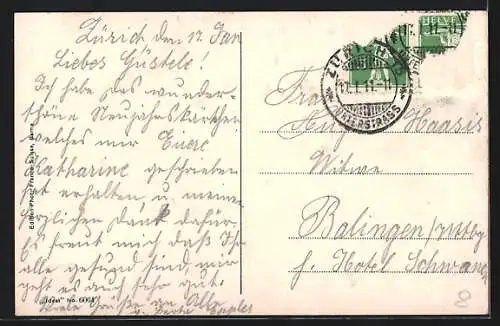 Zürich den 17. Jan
Liebes Güstele!
Ich habe das wunder-
schöne Neujahrskärtchen
welches mir Eure
Katharine geschrieben
hat erhalten u. meinen
herzlichen Dank dafür
Es freut mich daß Ihr
alle gesund sind, mir
geht es auch sehr gut.
Viele Grüße an Alle
Edition Photo
"Ideal" No. 600
ZÜRICH
HELVE
Frau
Haasis
Witwe
Balingen
z. Hotel Schwanen